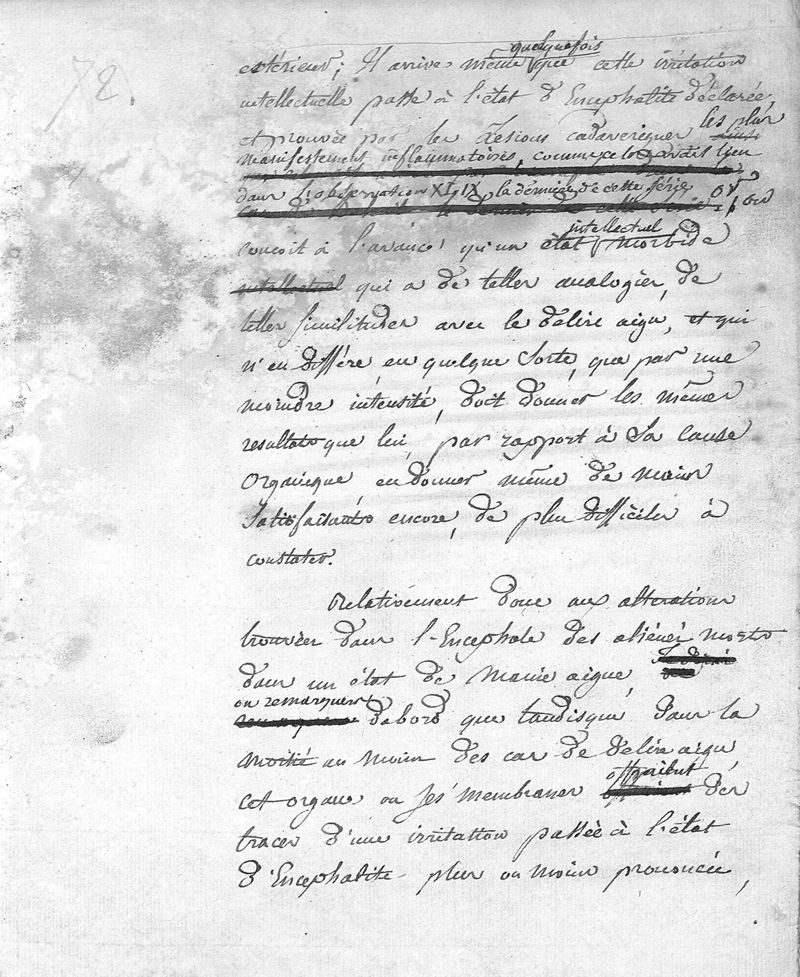 72.
quelquefois
extérieur; Il arrive même que cette irritation
intellectuelle passe à l'état d'Encephalite déclarée,
et prouvée par les Lésions cadaveriques les plus
manifestement inflammatoires, comme
dans l'observation XLIX la dernière de cette série or, on
intellectuel
conçoit à l'avance qu'un état morbide
intellectuel qui a de telles analogies, de
telles similitudes avec le délire aigu, et qui
n'en diffère, en quelque sorte, que par une
moindre intensité, doit donner les mêmes
resultats que lui, par rapport à sa cause
Organique en donner même de moins
Satisfaisants encore, de plus difficiles à
constater.
Relativement donc aux alterations
trouvées dans l'Encephale des aliénés morts
dans un état de Manie aiguë,
on remarquera
d'abord que tandisque dans la
moitié au moins des cas de délire aigu
offraient
cet organe ou ses membranes des
traces d'une irritation passée à l'état
d'Encephalite plus ou moins prononcée,